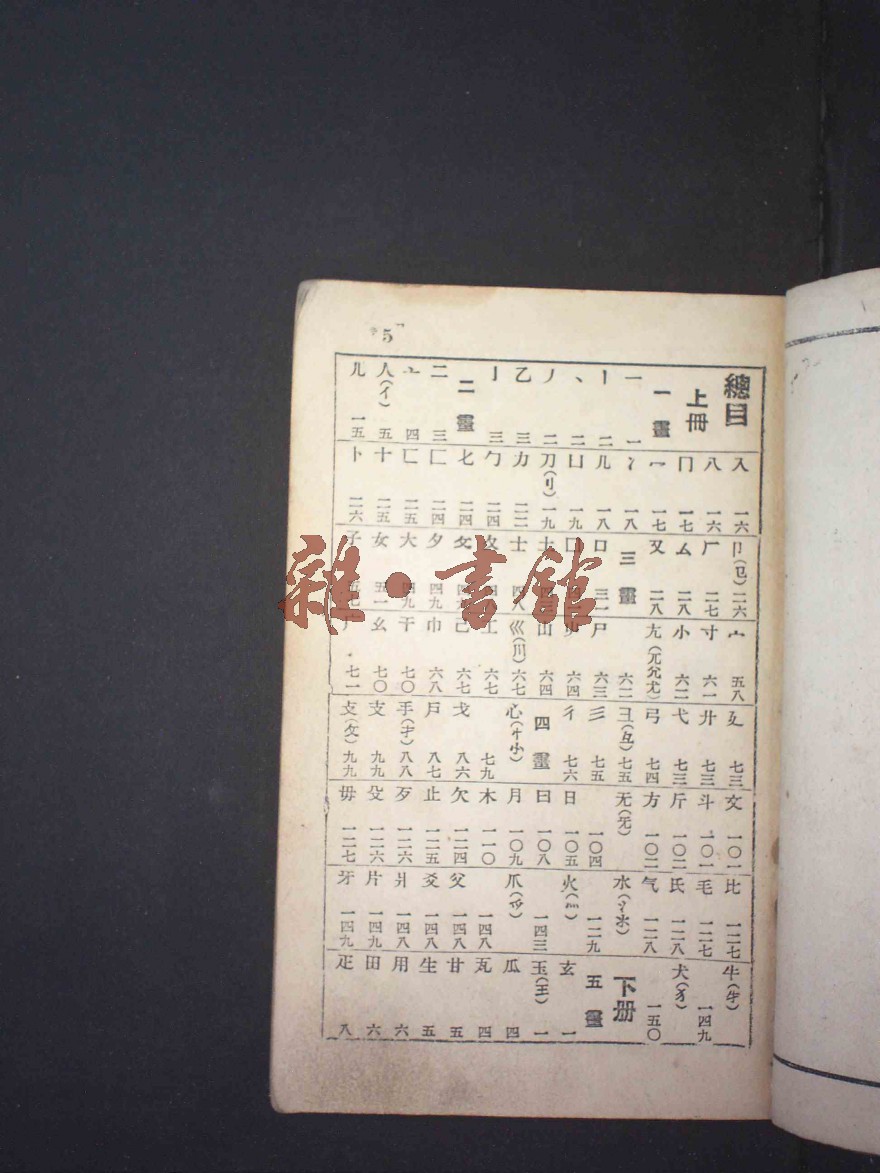 5
總目
上冊
一畫
一 一
丨 二
丶 二
丿 二
乙 三
亅 三
二畫
二 三
亠 四
人(亻) 五
儿 一五
入 一六
八 一六
冂 一七
冖 一七
冫 一八
几 一八
凵 一九
刀(刂) 一九
力 二二
勹 二四
匕 二四
匚 二四
匸 二五
十 二五
卜 二六
卩(㔾) 二六
厂 二七
厶 二八
又 二八
三畫
口 三一
囗
土
士 四八
夂
夊
夕 四九
大 四九
女 五一
子 五七
宀 五八
寸 六一
小 六二
尢(兀尣尤) 六二
尸 六三
屮 六四
山 六四
巛(川) 六七
工 六七
己 六七
巾 六八
干 七〇
幺 七〇
广 七一
廴 七三
廾 七三
弋 七三
弓 七四
彐(彑) 七五
彡 七五
彳 七六
四畫
心(忄㣺) 七九
戈 八六
戶 八七
手(扌) 八八
支 九九
攴(攵) 九九
文 一〇一
斗 一〇一
斤 一〇二
方 一〇二
无(旡) 一〇四
日 一〇五
曰 一〇八
月 一〇九
木 一一〇
欠 一二四
止 一二五
歹 一二六
殳 一二六
毋 一二七
比 一二七
毛 一二七
氏 一二八
气 一二八
水(氵氺) 一二九
火(灬) 一四三
爪(爫) 一四八
父 一四八
爻 一四八
爿 一四八
片 一四九
牙 一四九
牛(牜) 一四九
犬(犭) 一五〇
下册
五畫
玄 一
玉(王) 一
瓜 四
瓦 四
甘 五
生 五
用 六
田 六
疋 八
雜·書館